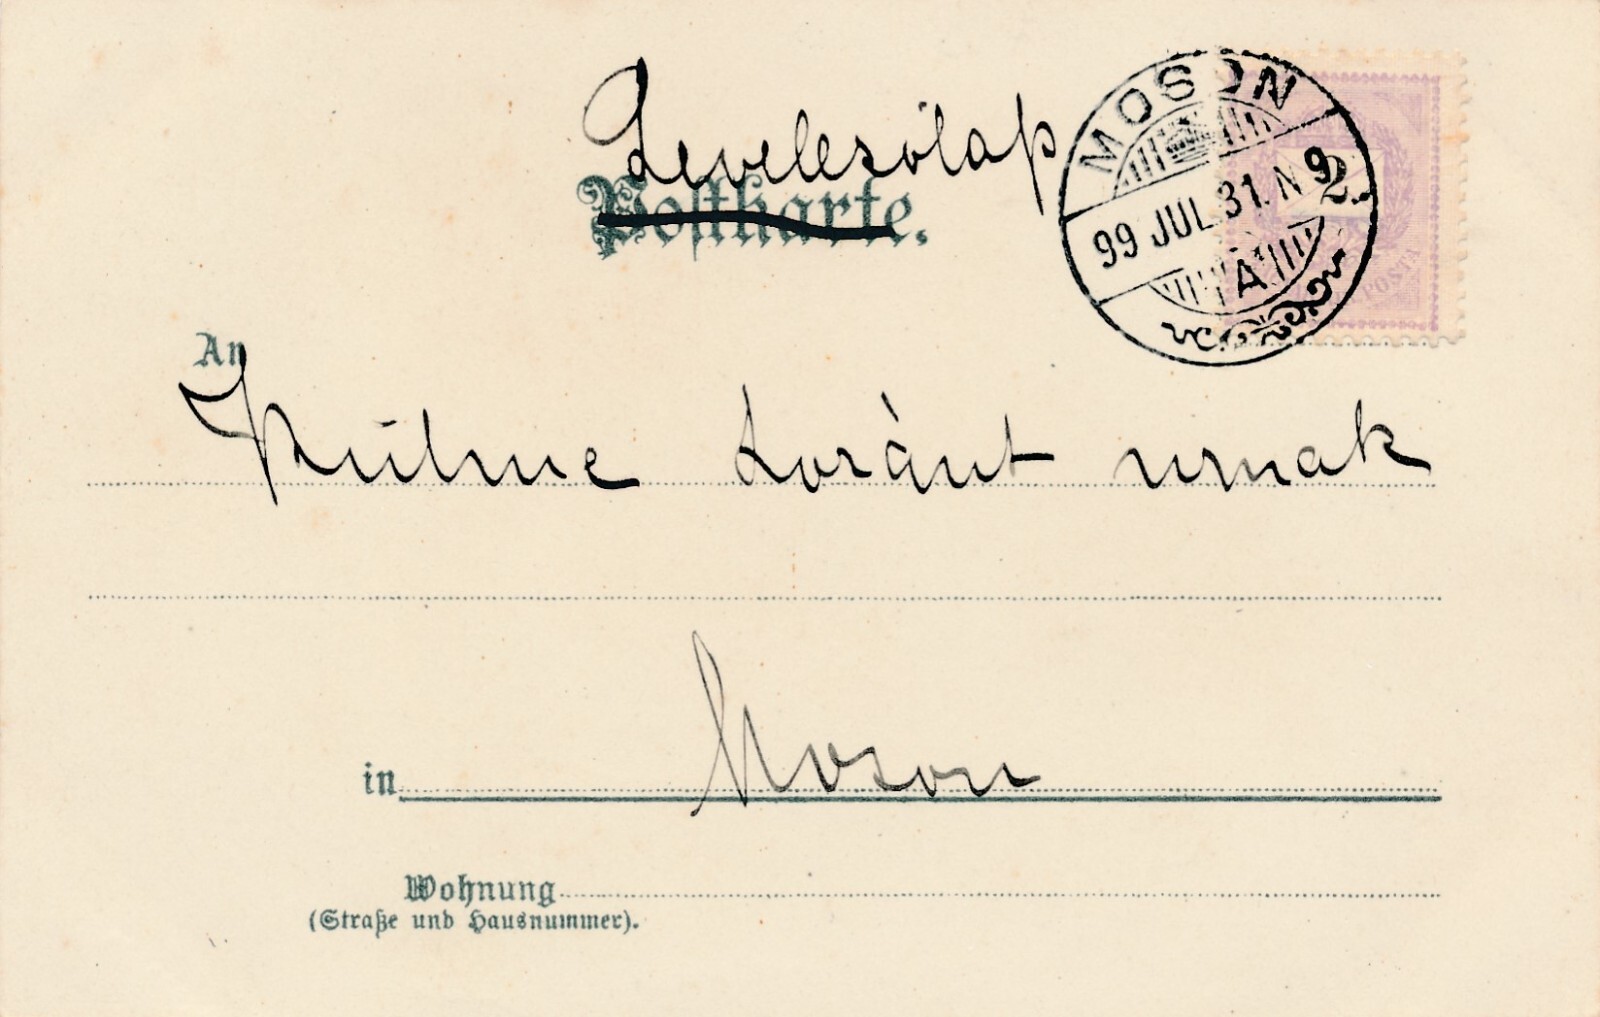 Levelezőlap
Postkarte.
MOSON
99 JUL. 31. N 9
A
2
POSTA
An
Kühne Loránt urnak
in Moson
Wohnung
(Straße und Hausnummer).